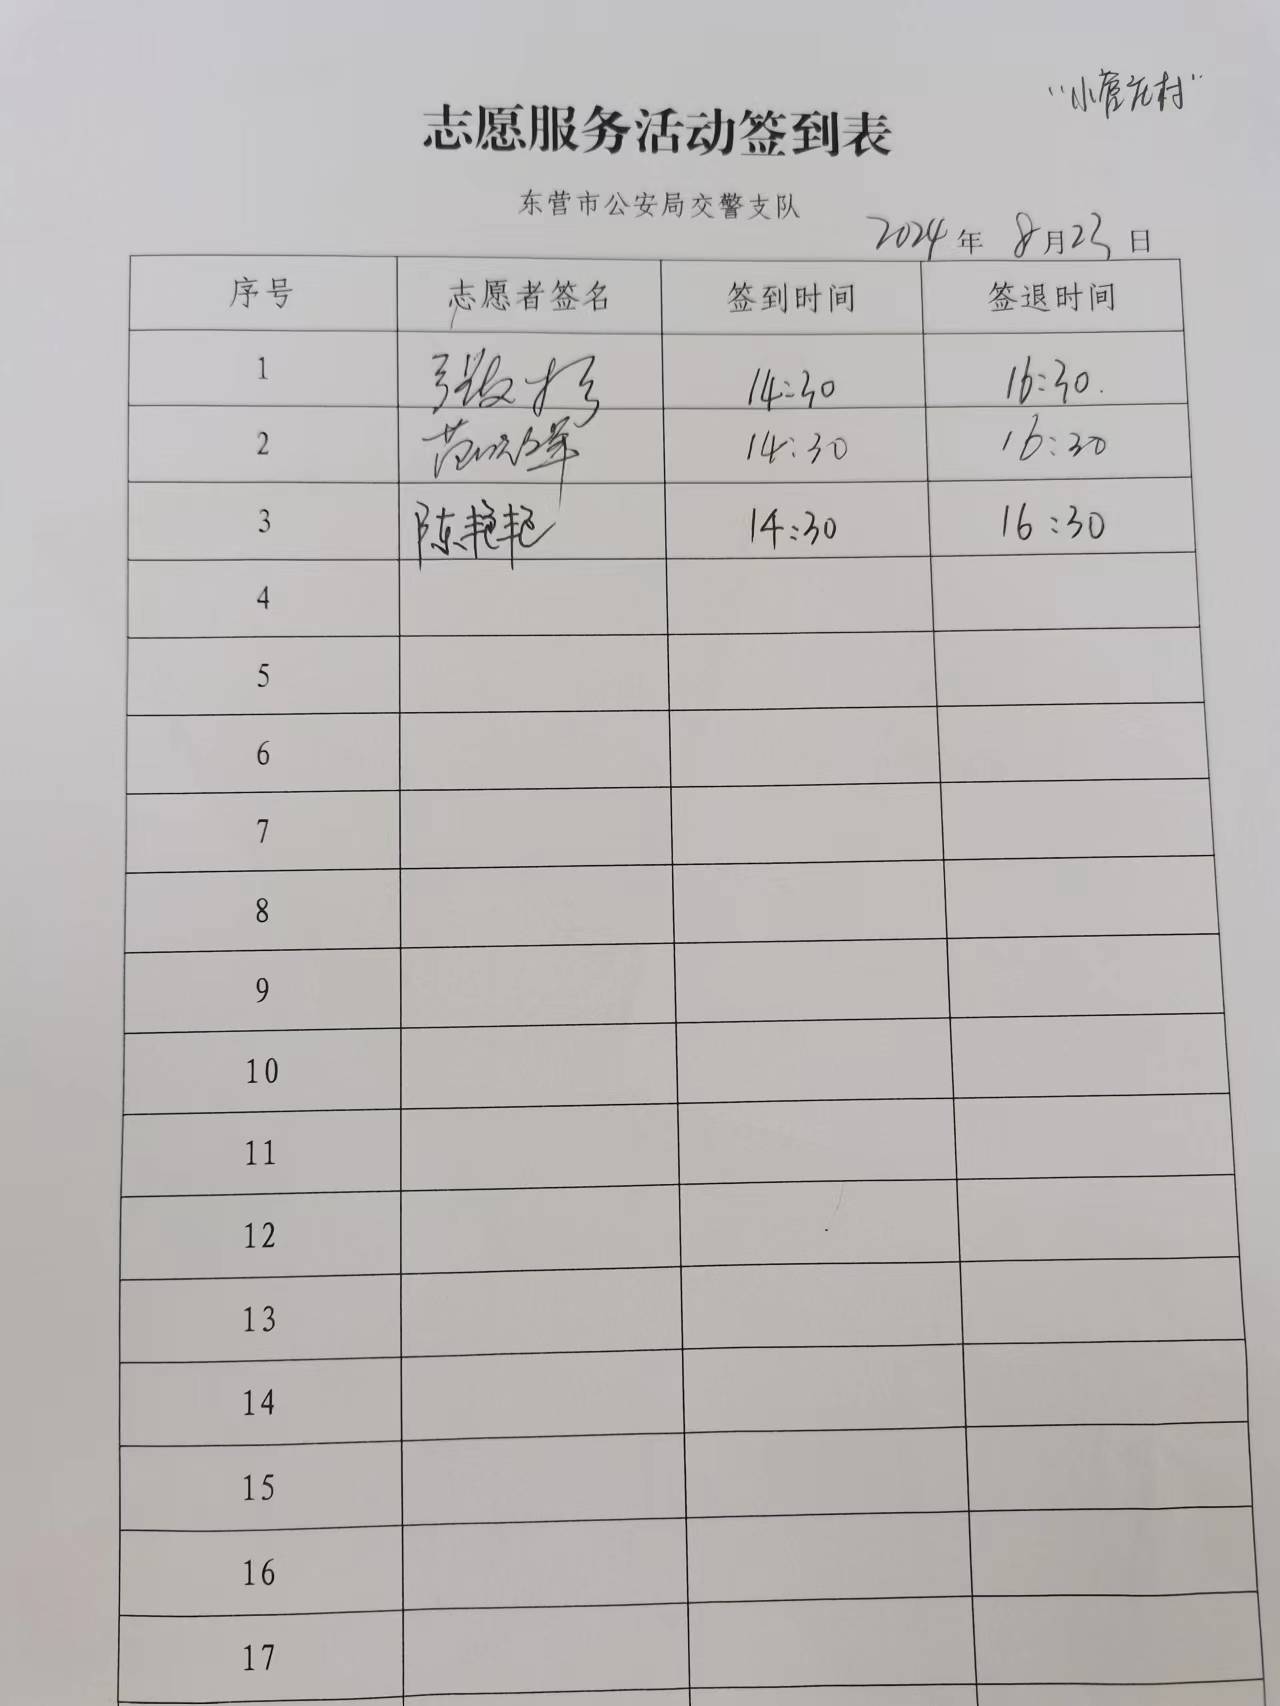 "小营花村"
志愿服务活动签到表
东营市公安局交警支队
2024年 8月23日
序号 志愿者签名 签到时间 签退时间
1 14:30 16:30.
2 14:30 16:30
3 陈艳艳 14:30 16:30
4
5
6
7
8
9
10
11
12
13
14
15
16
17